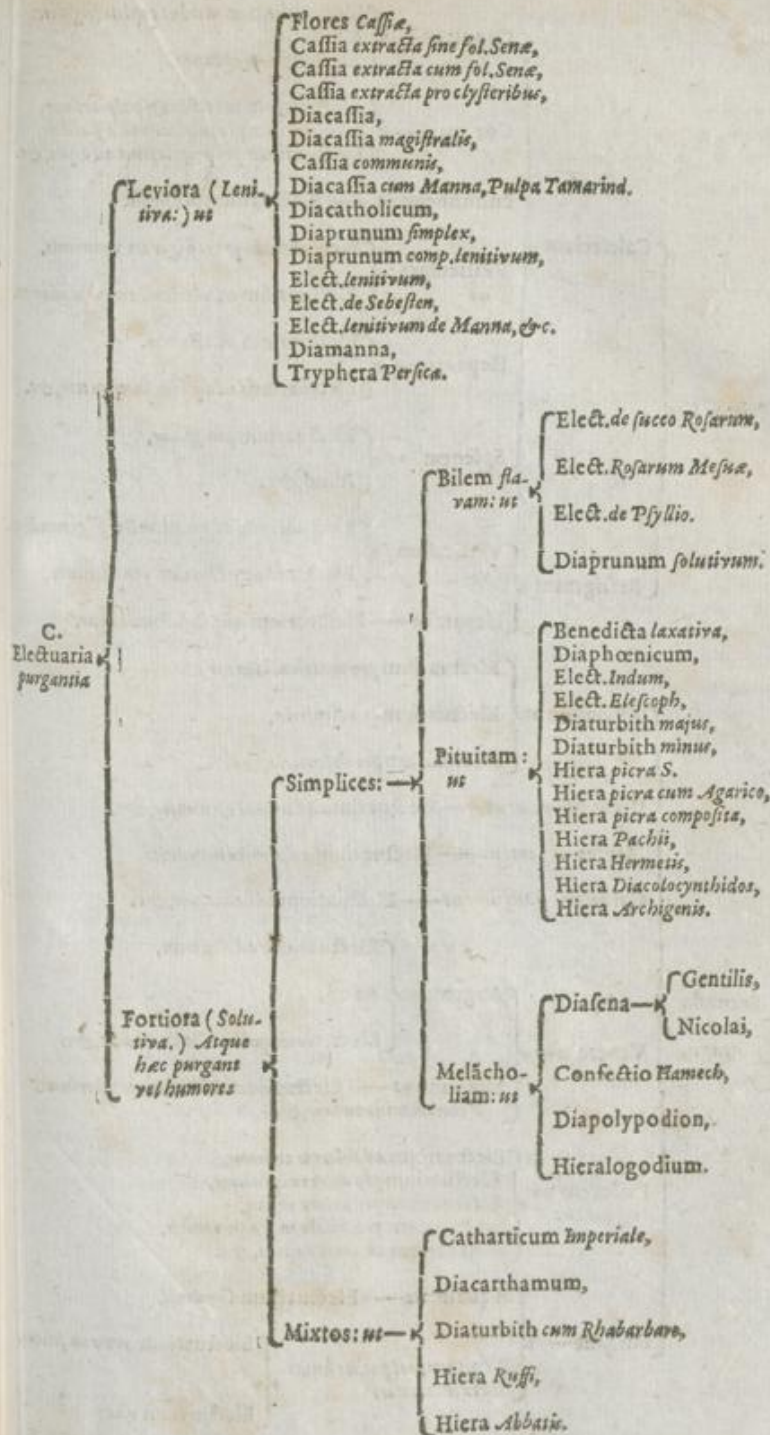 C.
Electuaria
purgantia
Leviora (Leni-
tiva:) ut
Flores Cassiæ,
Cassia extracta sine fol. Senæ,
Cassia extracta cum fol. Senæ,
Cassia extracta pro clysteribus,
Diacassia,
Diacassia magistralis,
Cassia communis,
Diacassia cum Manna, Pulpa Tamarind.
Diacatholicum,
Diaprunum simplex,
Diaprunum comp. lenitivum,
Elect. lenitivum,
Elect. de Sebesten,
Elect. lenitivum de Manna, &c.
Diamanna,
Tryphera Persica.
Fortiora (Solu-
tiva.) Atque
hæc purgant
vel humores
Simplices:
Bilem fla-
vam: ut
Elect. de succo Rosarum,
Elect. Rosarum Mesuæ,
Elect. de Psyllio.
Diaprunum solutivum.
Pituitam:
ut
Benedicta laxativa,
Diaphœnicum,
Elect. Indum,
Elect. Elescoph,
Diaturbith majus,
Diaturbith minus,
Hiera picra S.
Hiera picra cum Agarico,
Hiera picra composita,
Hiera Pachii,
Hiera Hermetis,
Hiera Diacolocynthidos,
Hiera Archigenis.
Melācho-
liam: ut
Diasena
Gentilis,
Nicolai,
Confectio Hamech,
Diapolypodion,
Hieralogodium.
Mixtos: ut
Catharticum Imperiale,
Diacarthamum,
Diaturbith cum Rhabarbaro,
Hiera Ruffi,
Hiera Abbatis.